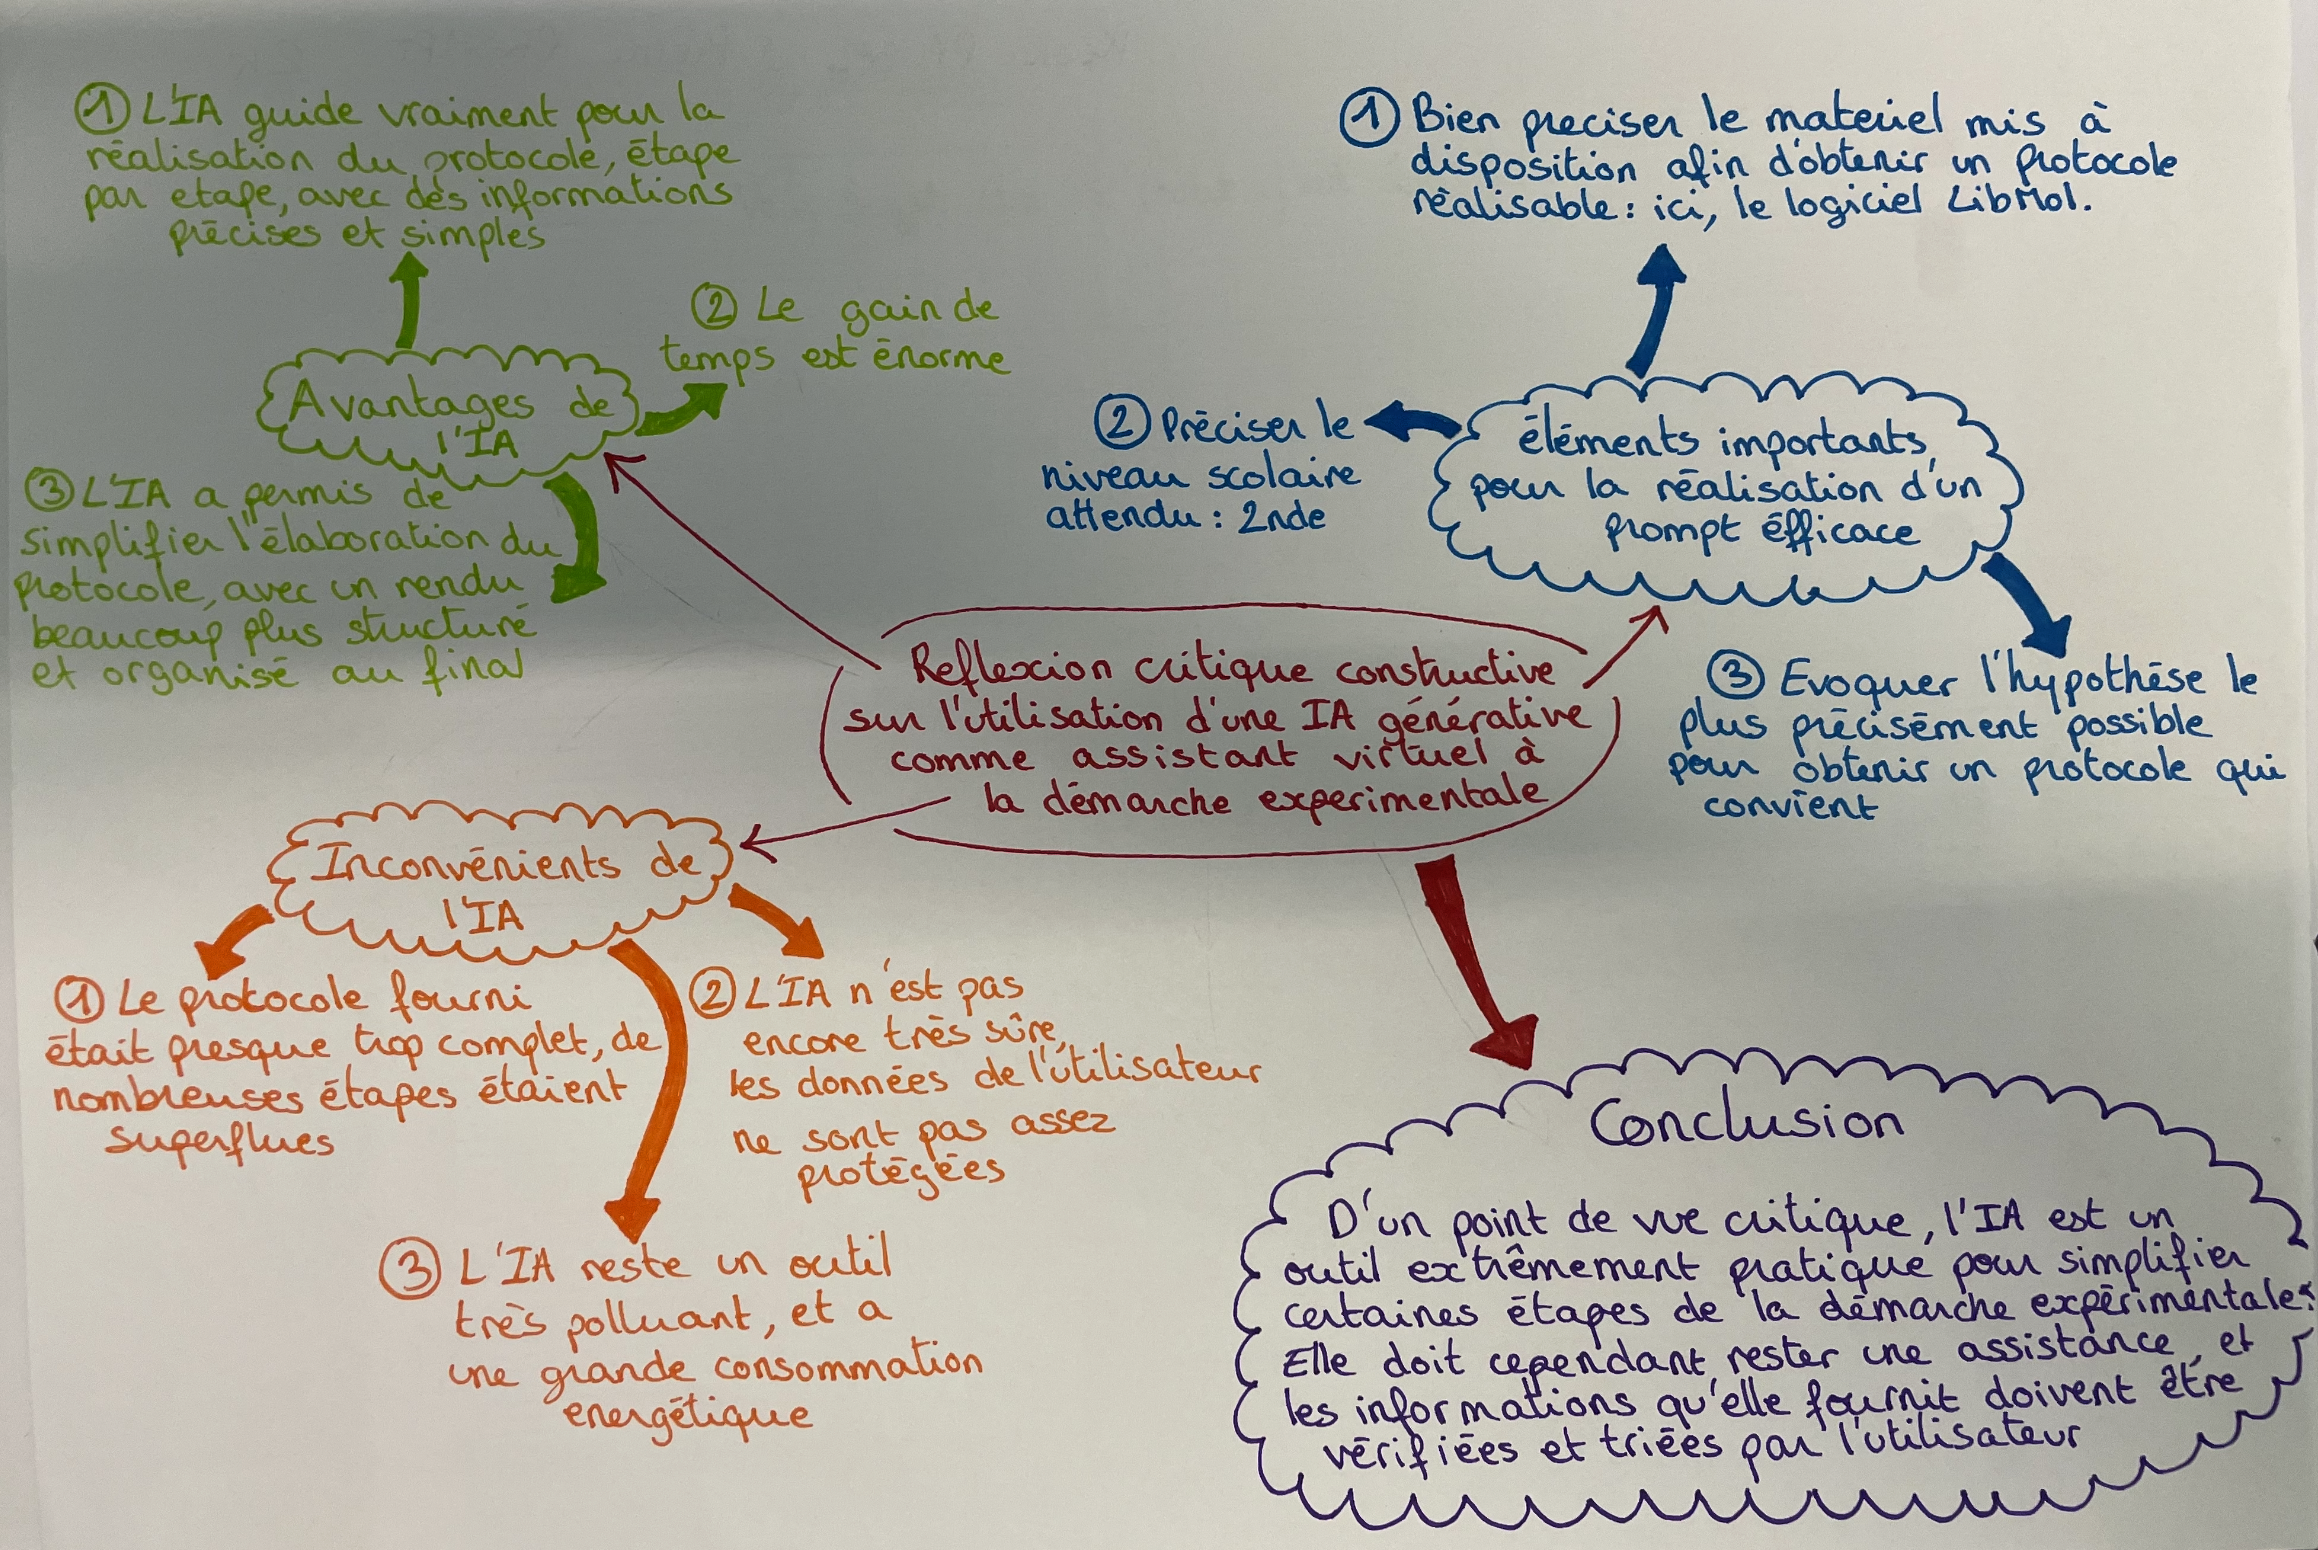 ① L'IA guide vraiment pour la
réalisation du protocole, étape
par etape, avec des informations
précises et simples
② Le gain de
temps est énorme
Avantages de
l'IA
③ L'IA a permis de
simplifier l'élaboration du
protocole, avec un rendu
beaucoup plus structuré
et organisé au final
① Bien preciser le materiel mis à
disposition afin d'obtenir un protocole
réalisable : ici, le logiciel LibMol.
② Préciser le
niveau scolaire
attendu : 2nde
éléments importants
pour la réalisation d'un
prompt éfficace
③ Evoquer l'hypothése le
plus précisément possible
pour obtenir un protocole qui
convient
Reflexion critique constructive
sur l'utilisation d'une IA générative
comme assistant virtuel à
la démarche experimentale
Inconvénients de
l'IA
① Le protocole fourni
était presque trop complet, de
nombreuses étapes étaient
superflues
② L'IA n'est pas
encore très sûre,
les données de l'utilisateur
ne sont pas assez
protégées
③ L'IA reste un outil
très polluant, et a
une grande consommation
energétique
Conclusion
D'un point de vue critique, l'IA est un
outil extrêmement pratique pour simplifier
certaines étapes de la démarche expérimentale.
Elle doit cependant rester une assistance, et
les informations qu'elle fournit doivent être
vérifiées et triées par l'utilisateur